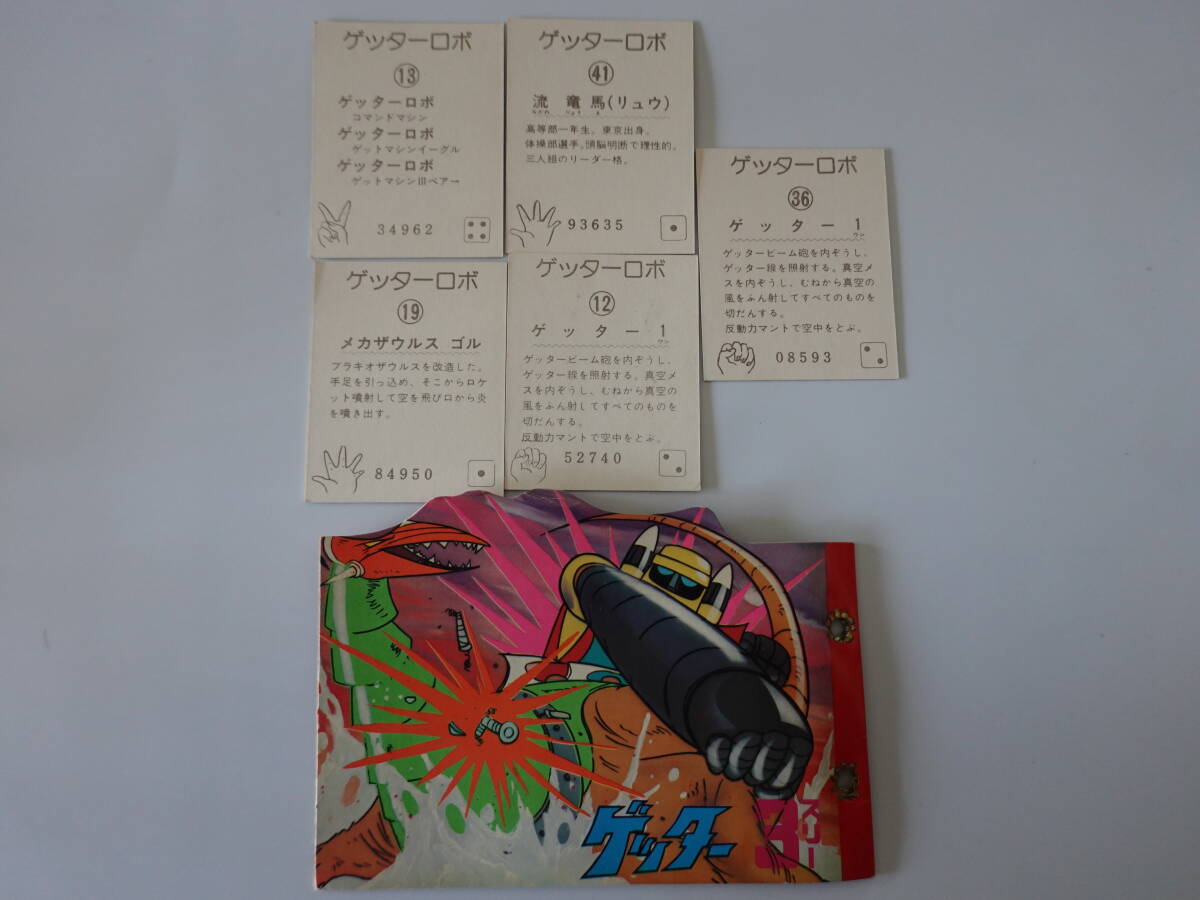 ゲッターロボ
13
ゲッターロボ
コマンドマシン
ゲッターロボ
ゲットマシンイーグル
ゲッターロボ
ゲットマシンIIIベアー
34962
ゲッターロボ
41
流 竜 馬(リュウ)
ながれ りょう ま
高等部一年生。東京出身。
体操部選手。頭脳明断で理性的。
三人組のリーダー格。
93635
ゲッターロボ
36
ゲッター 1
ワン
ゲッタービーム砲を内ぞうし、
ゲッター線を照射する。真空メ
スを内ぞうし、むねから真空の
風をふん射してすべてのものを
切だんする。
反動力マントで空中をとぶ。
08593
ゲッターロボ
19
メカザウルス ゴル
ブラキオザウルスを改造した。
手足を引っ込め、そこからロケ
ット噴射して空を飛び口から炎
を噴き出す。
84950
ゲッターロボ
12
ゲッター 1
ワン
ゲッタービーム砲を内ぞうし、
ゲッター線を照射する。真空メ
スを内ぞうし、むねから真空の
風をふん射してすべてのものを
切だんする。
反動力マントで空中をとぶ。
52740
ゲッター
3